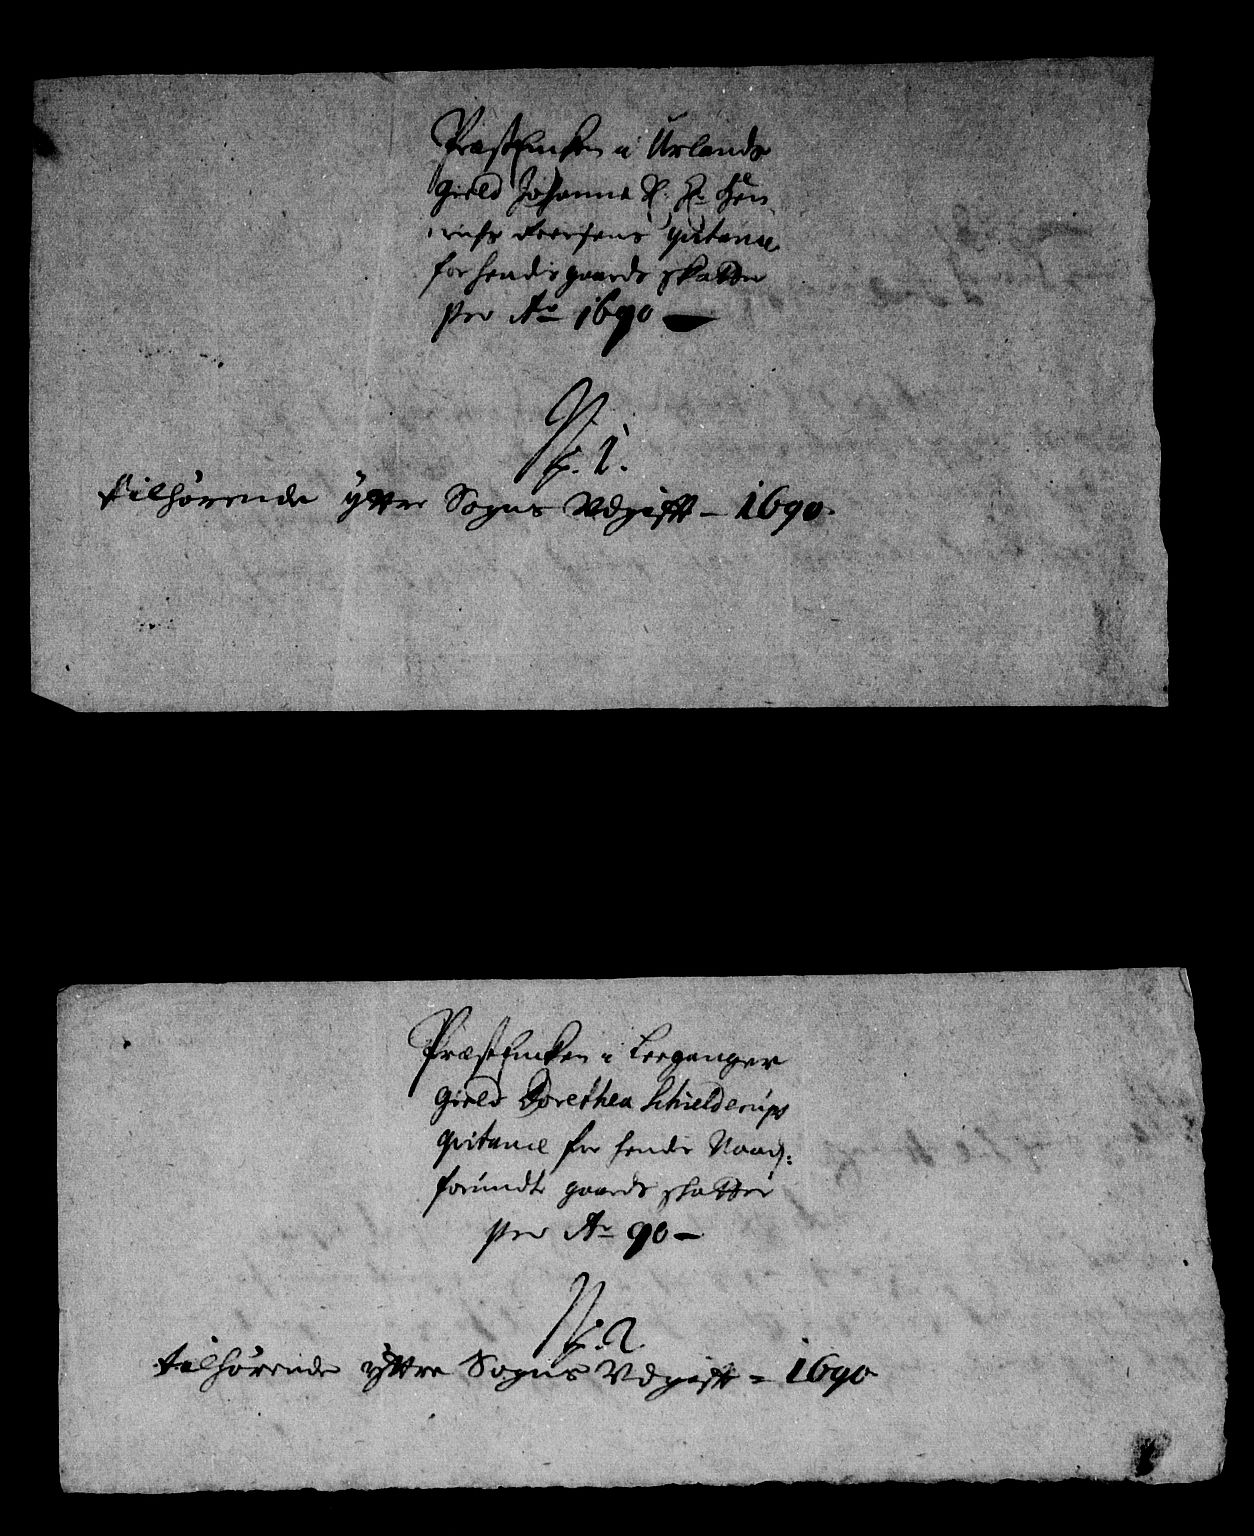 Præst Encken i Urlands
gield Johanna S: Hr: Hen
richs Iversens qvitans
for hendis gaards skatter
pro Ao 1690
No. 1.
tilhørende ÿttre Sogns Udgifft - 1690.
Præst Encken i Leeganger
gield Dorethea Schielderups
qvitans for hendis Naads:
forundte gaards skatter
pro Ao 90 -
No. 2.
tilhørende ÿttre Sogns Udgifft - 1690